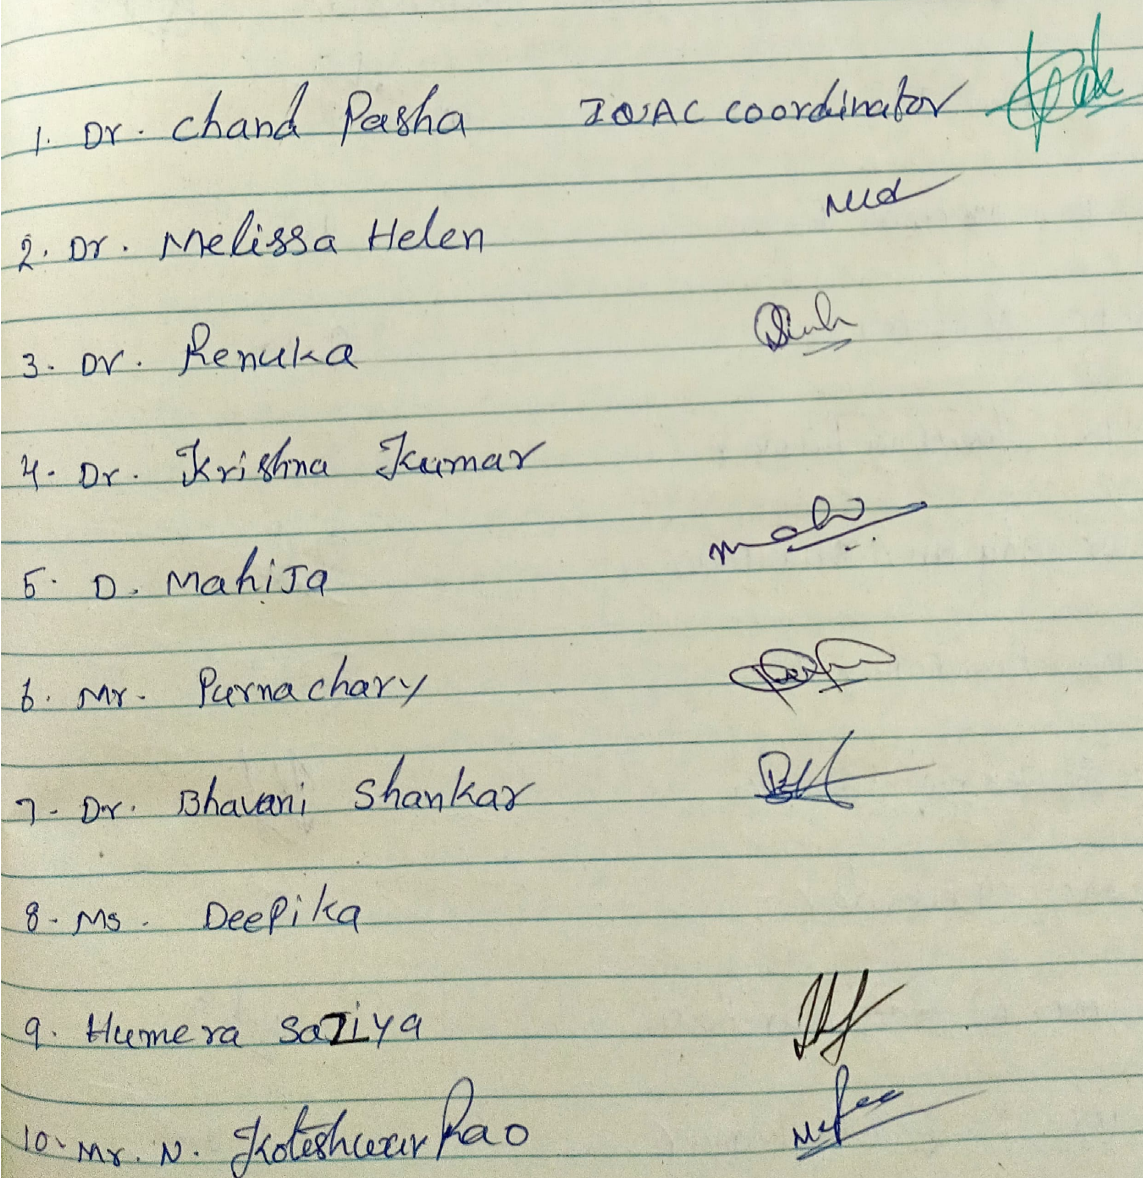 1. Dr. Chand Pasha IQAC Coordinator
2. Dr. Melissa Helen
3. Dr. Renuka
4. Dr. Krishna Kumar
5. D. Mahija
6. Mr. Purnachary
7. Dr. Bhavani Shankar
8. Ms. Deepika
9. Humera Saziya
10. Mr. N. Koteshwar Rao